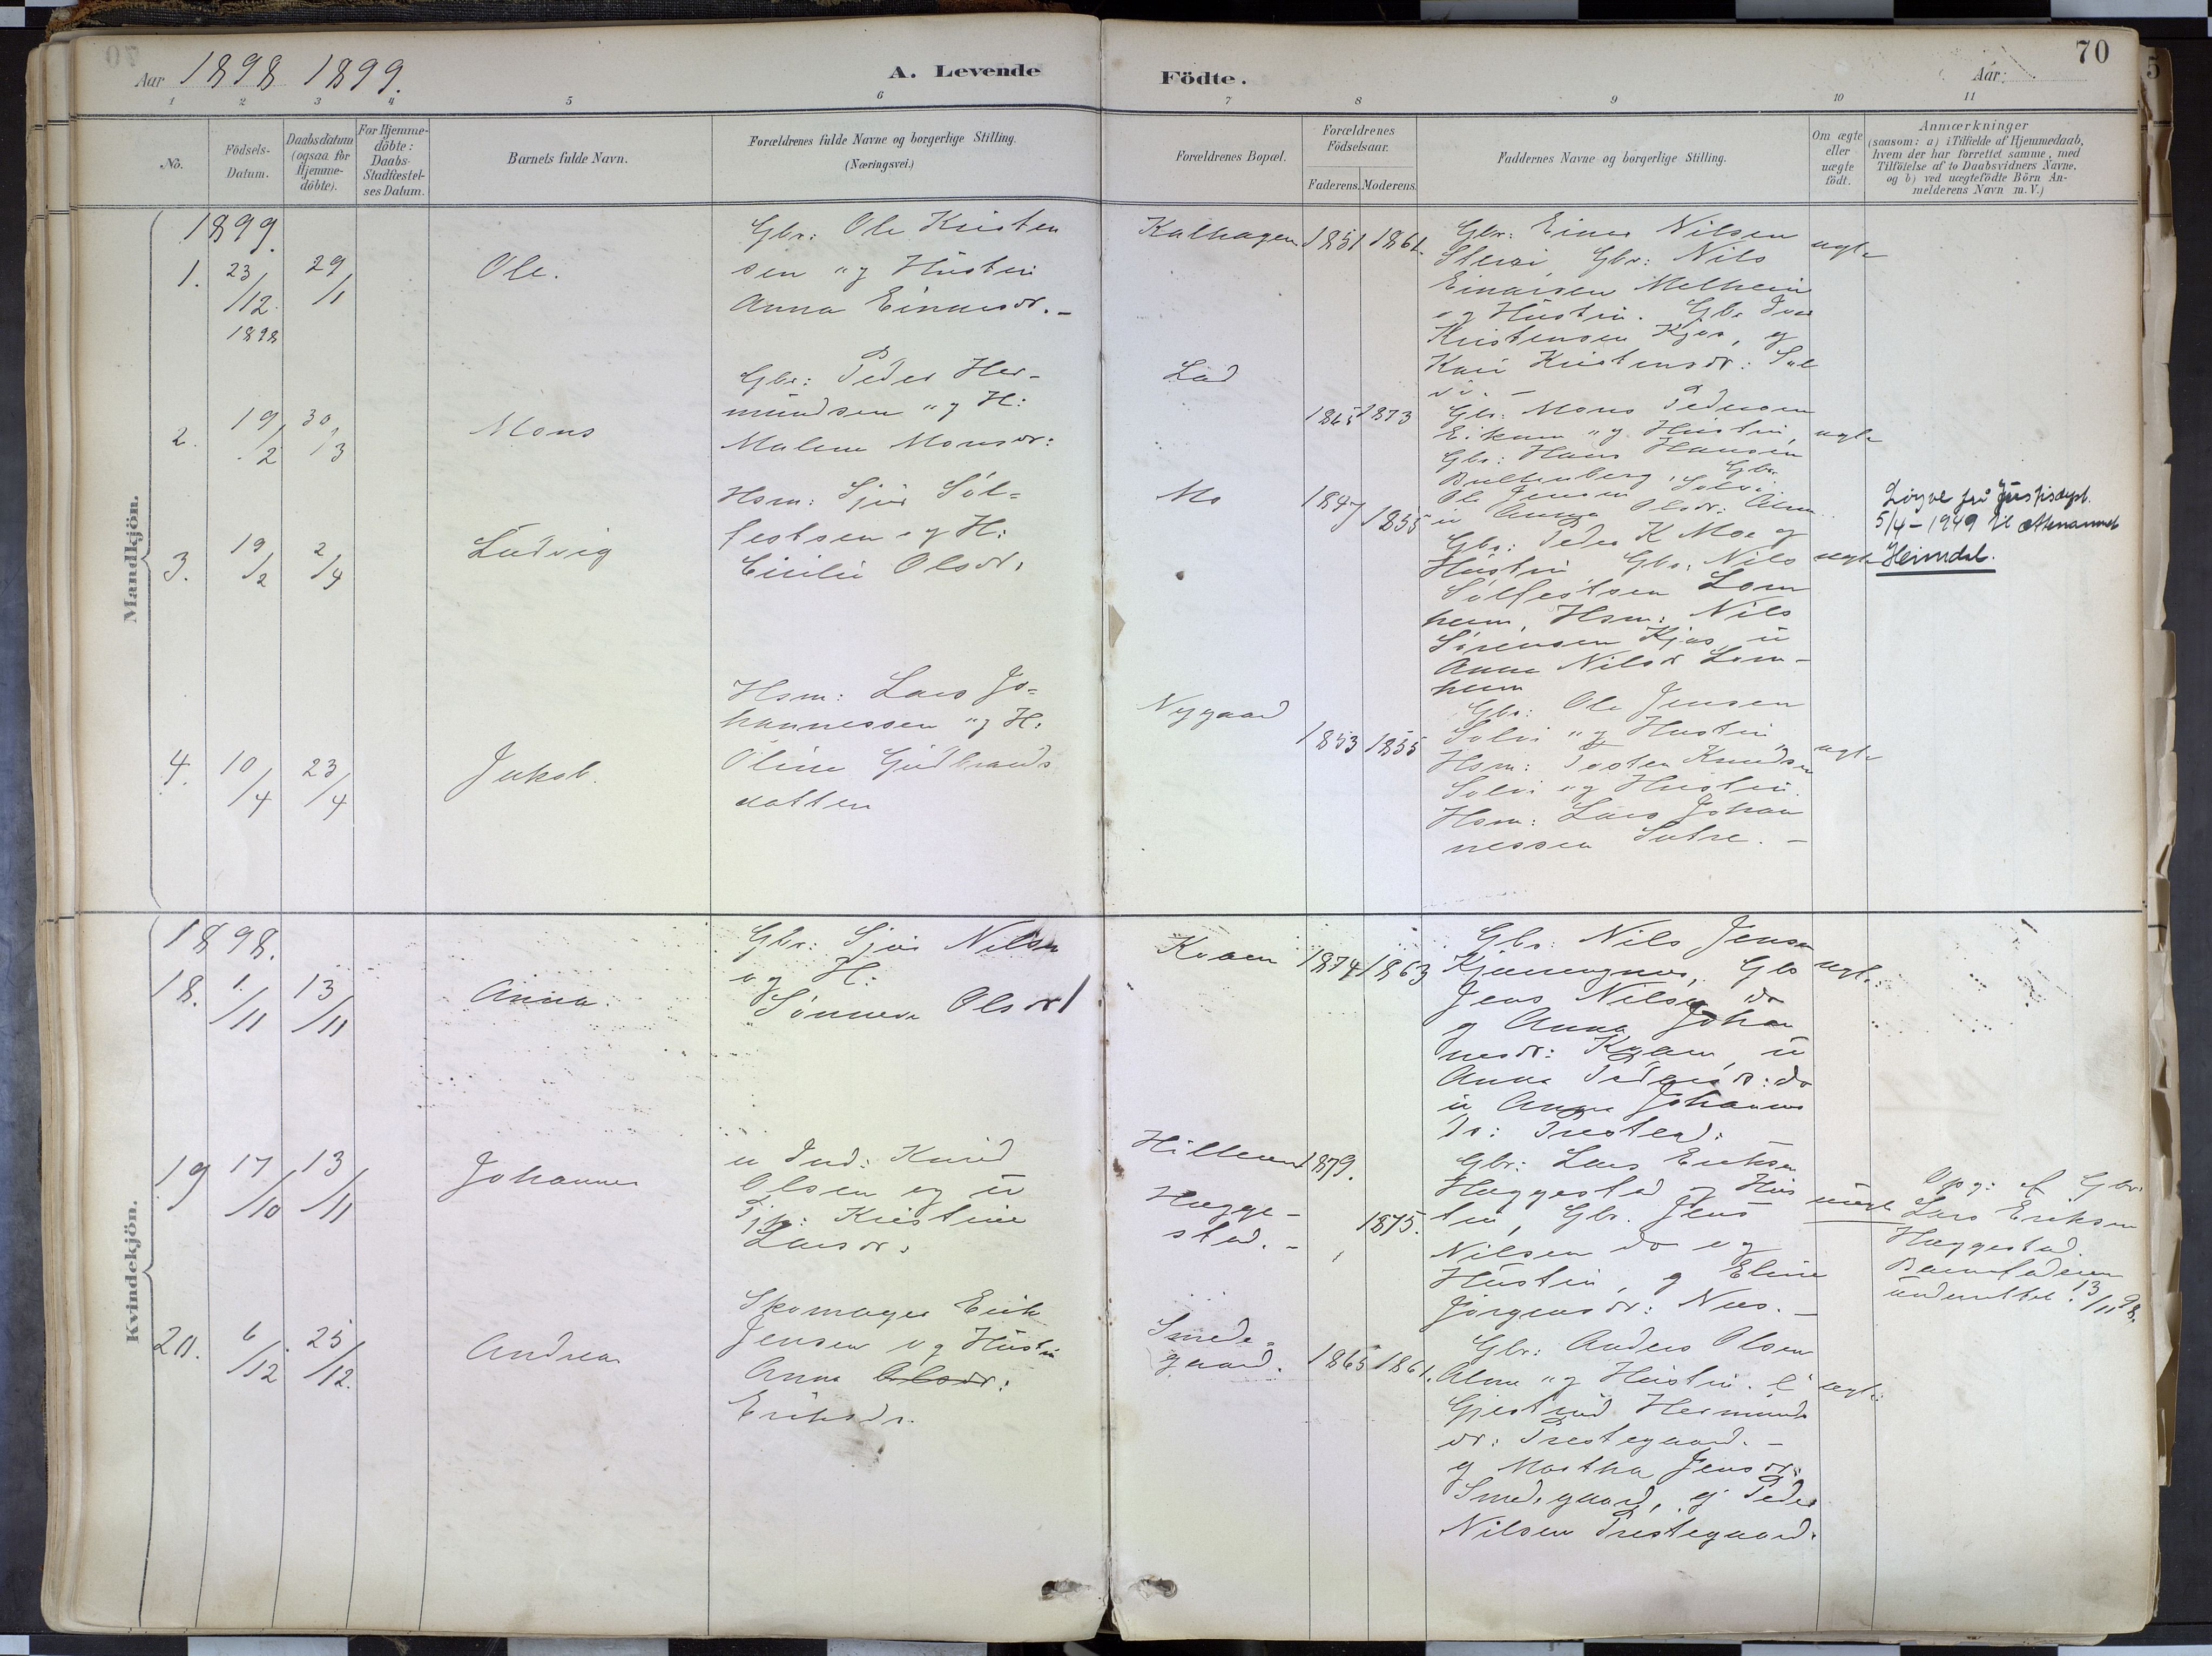 70
Aar 1898 1899.
A. Levende Födte.
Aar:
1 2 3 4 5 6 7 8 9 10 11
No.
Födsels-Datum.
Daabsdatum (ogsaa for Hjemme-döbte).
For Hjemme-döbte: Daabs-Stadfæstel-ses Datum.
Barnets fulde Navn.
Forældrenes fulde Navne og borgerlige Stilling.
(Næringsvei.)
Forældrenes Bopæl.
Forældrenes Födselsaar.
Faderens. Moderens.
Faddernes Navne og borgerlige Stilling.
Om ægte eller uægte födt.
Anmærkninger
(saasom: a) i Tilfælde af Hjemmedaab,
hvem der har forrettet samme, med
Tilföielse af to Daabsvidners Navne,
og b) ved uægtefödte Börn An-
melderens Navn m. V.)
Mandkjön.
1899.
1. 23/12 1898
29/1
Ole.
Gbr: Ole Kristen
sen og Hustru
Anna Einarsdr. -
Kalhagen
1851 1861.
Gbr: Einar Nilsen
Gbr: Nils
Einarsen Melheim
og Hustru. Gbr Ivar
Kristensen Kjos, og
Kari Kristensdr: Sol
vi. -
ægte
2. 19/2 30/3
Mons
Gbr: Peder Her-
mundsen og H:
Malene Monsdr:
Lad
1865 1873
Gbr: Mons Pedersen
Eikum og Hustru,
Gbr: Hans Hansen
Gbr.
Ole Jensen Solvi
u Anna Olsdr: Alm
ægte
3. 19/2 2/4
Ludvig
Hsm: Sjur Söl-
festsen og H:
Cicilie Olsdr.
Mo
1847 1855
Gbr: Peder K Moe og
Hustru Gbr: Nils
Sölfestsen Lom
heim, Hsm: Nils
Sörensen Kjos, u
Anna Nilsdr Lom-
heim
ægte
Löyve frå Justisdept.
5/4 - 1949 til
Heimdal.
4. 10/4 23/4
Jakob.
Hsm: Lars Jo-
hannessen og H:
Oline Gudbrands
datter
Nygaard
1853 1855
Gbr: Ole Jensen
Solvi og Hustru
Hsm: Torsten Knudsen
Solvi og Hustru.
Hsm: Lars Johan
nessen Sutre. -
ægte
Kvindekjön.
1898.
18. 1/11 13/11
Anna.
Gbr: Sjur Nilsen
og H:
Sönneva Olsdr
Kvam
1874 1863
Gbr: Nils Jensen
Gbr
Jens Nilsen do
og Anna Johan
nesdr: Kvam, u
Anna Pedersdr: do
u Anna Johannes
dr: Presteg:
ægte:
19 17/10 13/11
Johanna
u Ind: Knud
Olsen og u
Pg: Kristine
Larsdr.
Hillern
Hægge-
stad. -
1879.
1875.
Gbr: Lars Eriksen
Hæggestad og Hus
tru, Gbr. Jens
Nilsen do og
Hustru, og Eline
Jörgensdr: Næs. -
uægte
Opg: af Gbr:
Lars Eriksen
Hæggestad.
Barnefaderen
underrettet. 13/11 98.
20. 6/12 25/12.
Andrea
Skomager Erik
Jensen og Hustru
Anna Olsdr:
Eriksdr.
Smede-
gaard.
1865 1861.
Gbr: Anders Olsen
Alme og Hustru.
Gjertrud Hermunds
dr: Prestegaard. -
og Martha Jensdr:
Smedegaard, og Peder
Nilsen Prestegaard.
ægte: